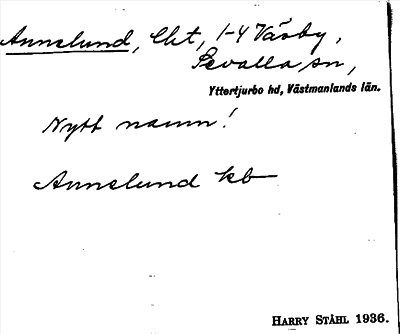 Annelund, lht, 1-4 Väsby,
Sevalla sn,
Yttertjurbo hd, Västmanlands län.
Nytt namn!
Annelund kb
HARRY STÅHL 1936.